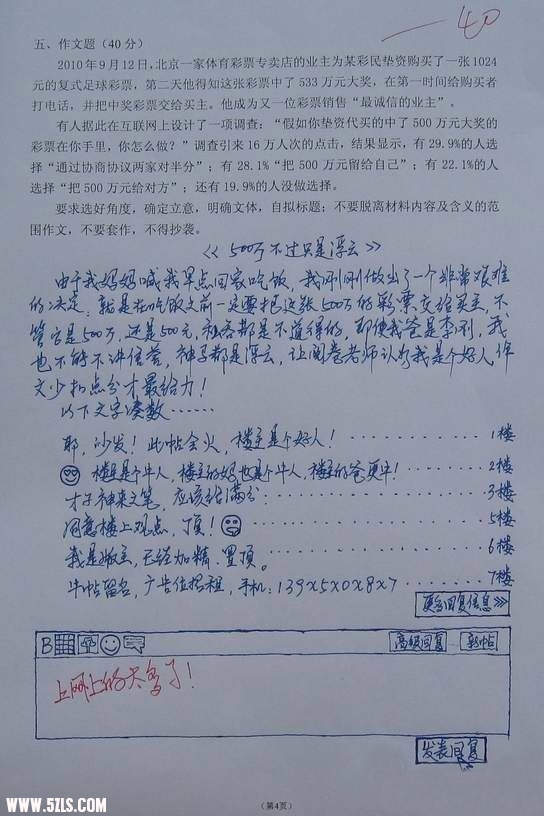 -40
五、作文题（40 分）
2010 年 9 月 12 日，北京一家体育彩票专卖店的业主为某彩民垫资购买了一张 1024
元的复式足球彩票，第二天他得知这张彩票中了 533 万元大奖，在第一时间给购买者
打电话，并把中奖彩票交给买主。他成为又一位彩票销售“最诚信的业主”。
有人据此在互联网上设计了一项调查：“假如你垫资代买的中了 500 万元大奖的
彩票在你手里，你怎么做？”调查引来 16 万人次的点击，结果显示，有 29.9%的人选
择“通过协商协议两家对半分”；有 28.1%“把 500 万元留给自己”；有 22.1%的人
选择“把 500 万元给对方”；还有 19.9%的人没做选择。
要求选好角度，确定立意，明确文体，自拟标题；不要脱离材料内容及含义的范
围作文，不要套作，不得抄袭。
《500万不过只是浮云》
由于我妈妈喊我早点回家吃饭，我刚刚做出了一个非常艰难
的决定，就是在吃饭之前一定要把这张500万的彩票交给买主，不
管它是500万，还是500元，私吞都是不道德的，即使我爸是李刚，我
也不能不讲信誉，神马都是浮云，让阅卷老师认为我是个好人，作
文少扣点分才最给力！
以下文字凑数……
耶，沙发！此帖会火，楼主是个好人！ 1楼
楼主是个牛人，楼主的妈也是个牛人，楼主的爸更牛！ 2楼
才子神来之笔，应该给满分 3楼
同意楼上观点，顶！ 5楼
我是版主，已经加精、置顶。 6楼
牛帖留名，广告位招租，手机：139x5x0x8x7 7楼
更多回复信息>>>
B 高级回复 转帖
上网上的太多了！
发表回复
WWW.5ZLS.COM
（第4页）